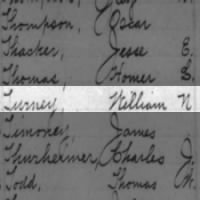 Thompson, Oscar
Thacker, Jesse E.
Thomas, Homer S.
Turney, William N
Timoney, James
Thurheimer, Charles J.
Todd, Thomas